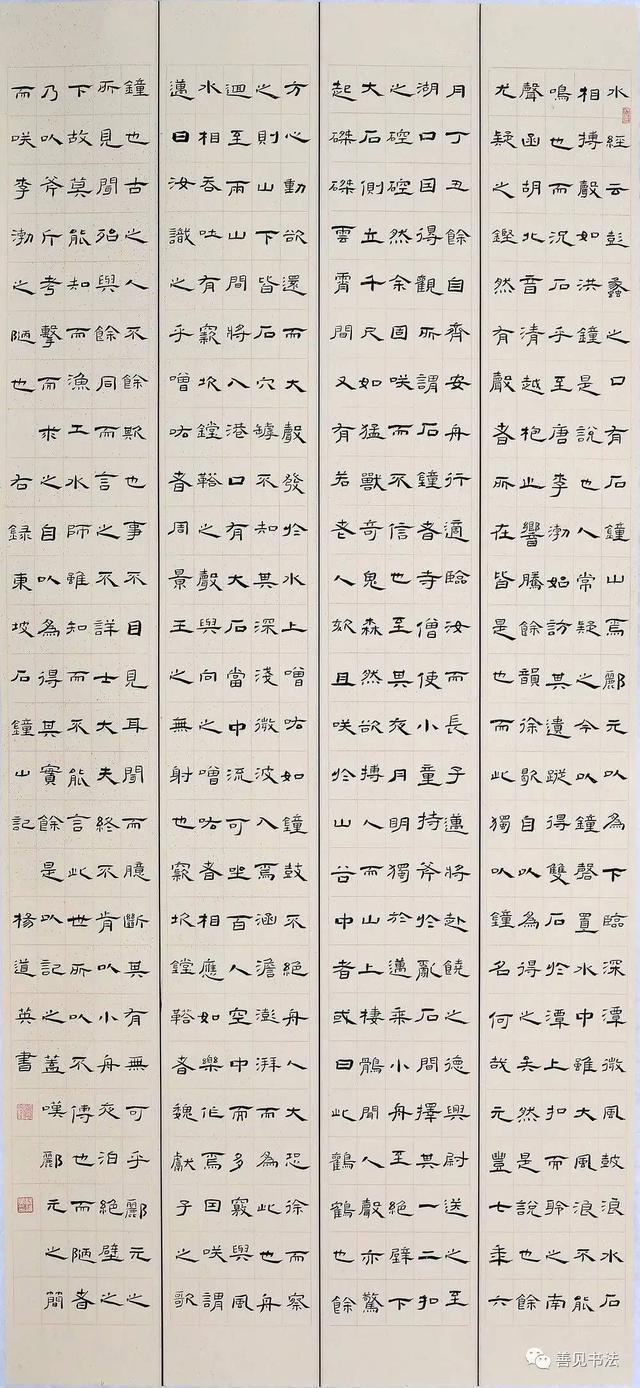 水經云彭蠡之口有石鐘山焉酈元以為下臨深潭微風鼓浪水石
相搏聲如洪鐘是說也人常疑之今以鐘磬置水中雖大風浪不能
鳴也而況石乎至唐李渤始訪其遺蹤得雙石於潭上扣而聆之南
聲函胡北音清越枹止響騰餘韻徐歇自以為得之矣然是說也餘
尤疑之鏗然有聲者所在皆是也而此獨以鐘名何哉元豐七年六
月丁丑餘自齊安舟行適臨汝而長子邁將赴饒之德興尉送之至
湖口因得觀所謂石鐘者寺僧使小童持斧於亂石間擇其一二扣
之硿硿然余固咲而不信也至其夜月明獨於邁乘小舟至絕壁下
大石側立千尺如猛獸奇鬼森然欲搏人而山上棲鶻聞人聲亦驚
起磔磔雲霄間又有若老人欬且咲於山谷中者或曰此鸛鶴也餘
方心動欲還而大聲發於水上噌吰如鐘鼓不絕舟人大恐徐而察
之則山下皆石穴罅不知其深淺微波入焉涵澹澎湃而為此也舟
迴至兩山間將入港口有大石當中流可坐百人空中而多竅與風
水相吞吐有竅坎鏜鞳之聲與向之噌吰者相應如樂作焉因咲謂
邁曰汝識之乎噌吰者周景王之無射也竅坎鏜鞳者魏獻子之歌
鐘也古之人不餘欺也事不目見耳聞而臆斷其有無可乎酈元之
所見聞殆與餘同而言之不詳士大夫終不肯以小舟夜泊絕壁之
下故莫能知而漁工水師雖知而不能言此世所以不傳也而陋者
乃以斧斤考擊而求之自以為得其實餘是以記之蓋嘆酈元之簡
而咲李渤之陋也 右錄東坡石鐘山記 楊道英書
善见书法